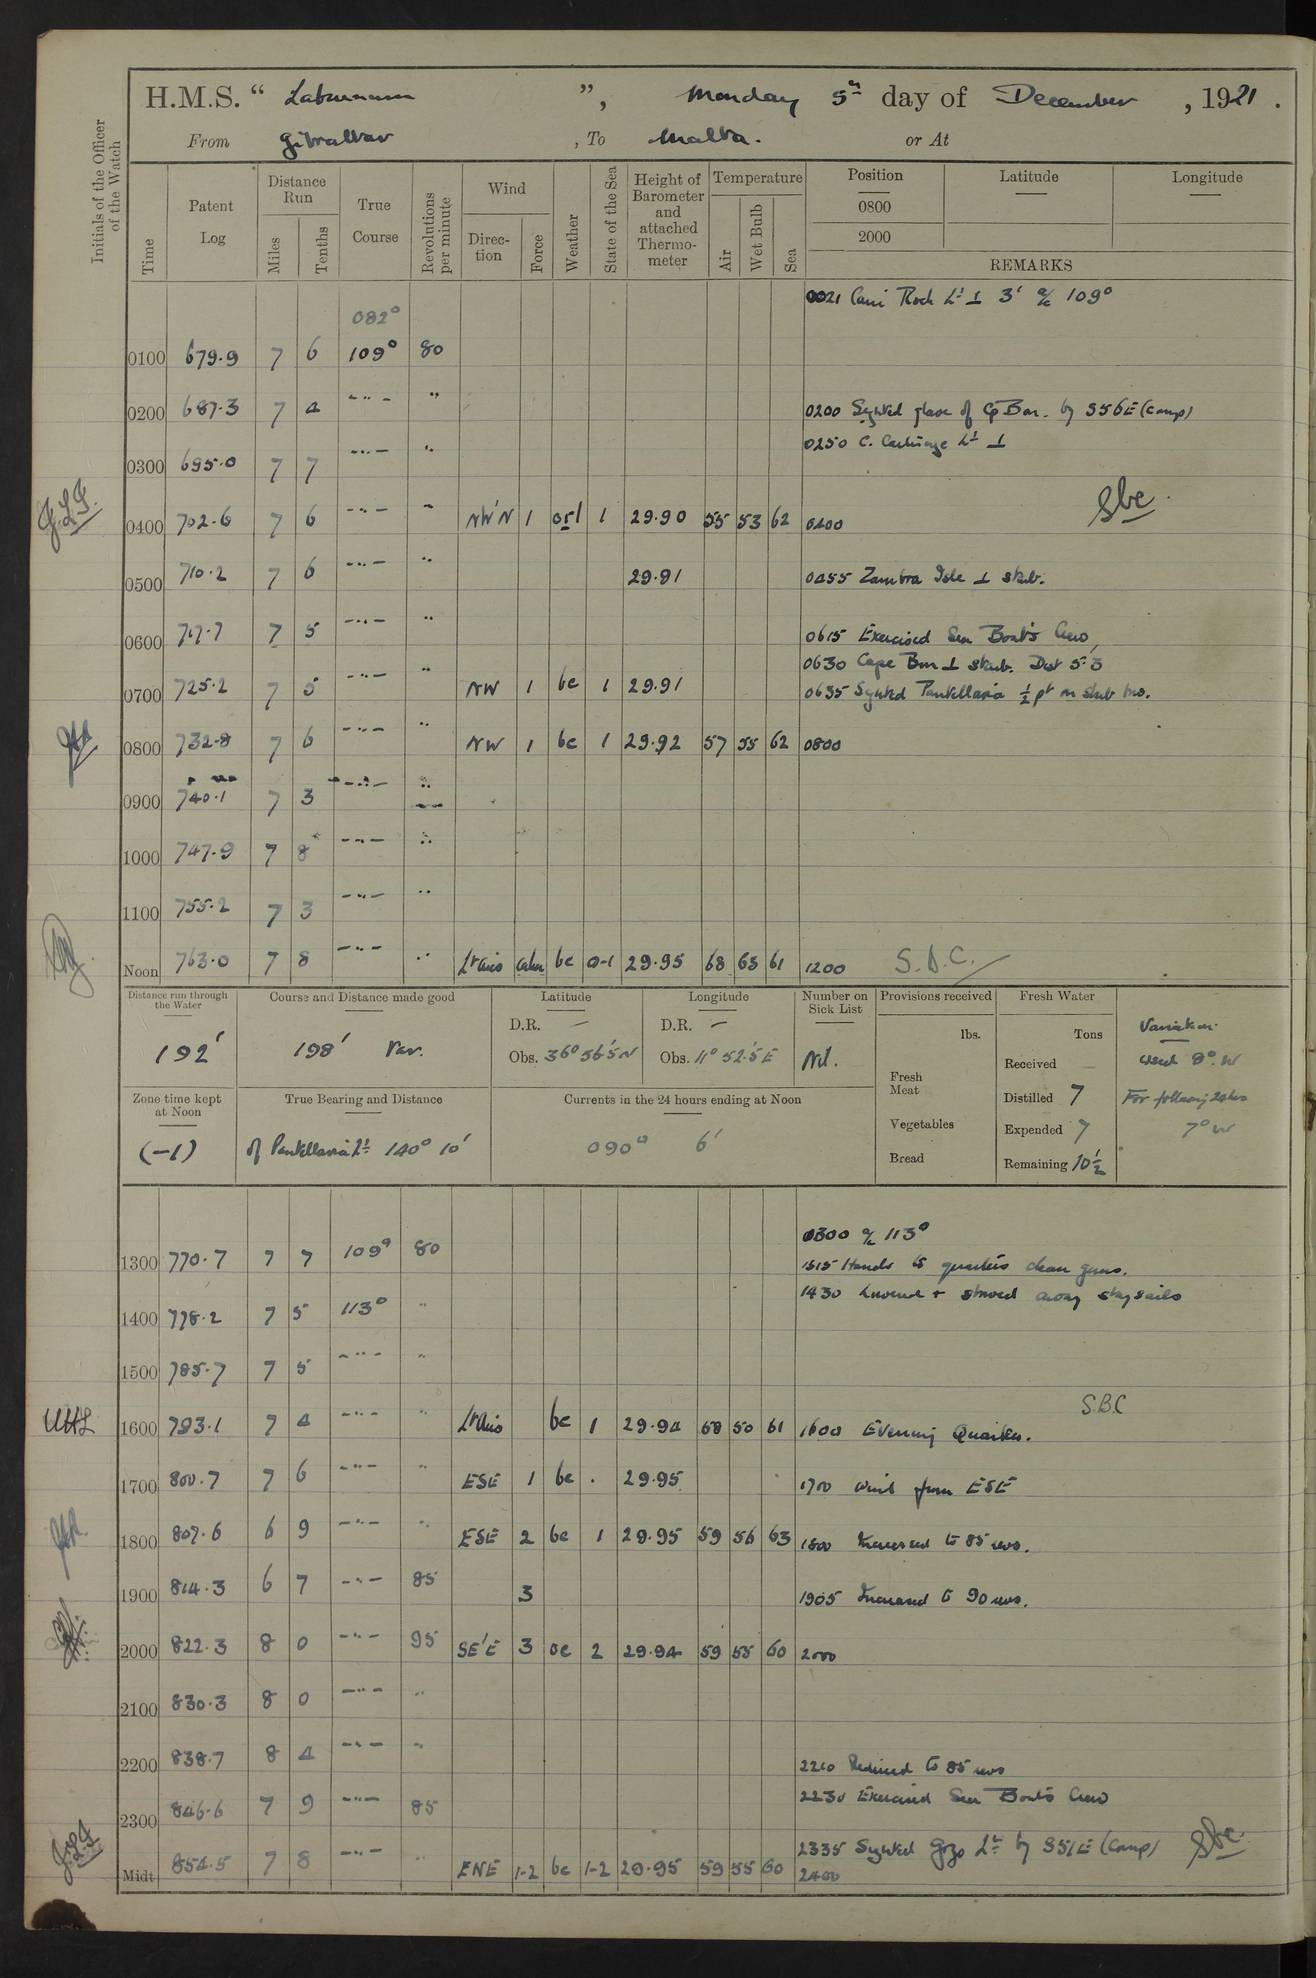 H.M.S. “ Laburnum ”, Monday 5th day of December , 1921 .
From Gibraltar , To Malta. or At
Initials of the Officer of the Watch
Time Patent Log Distance Run Miles Tenths True Course Revolutions per minute Wind Direction Force Weather State of the Sea Height of Barometer and attached Thermometer Temperature Air Wet Bulb Sea Position Latitude Longitude
0800
2000
REMARKS
0021 Cani Rock Lt ⊥ 3' a/c 109°
082°
0100 679.9 7 6 109° 80
0200 687.3 7 4 -"- " 0200 Sighted glare of Cp Bon. by S56E (comp)
0250 C. Carthage Lt ⊥
0300 695.0 7 7 -"- "
J.L.F. 0400 702.6 7 6 -"- " NW'N 1 orl 1 29.90 55 53 62 0400 SBC
0500 710.2 7 6 -"- " 29.91 0455 Zambra Isle ⊥ stab.
0600 717.7 7 5 -"- " 0615 Exercised Sea Boat's Crew,
0630 Cape Bon ⊥ stab. Dist 5.3
0700 725.2 7 5 -"- " NW 1 bc 1 29.91 0635 Sighted Pantellaria ½ pt on stab bow.
0800 732.8 7 6 -"- " NW 1 bc 1 29.92 57 55 62 0800
0900 740.1 7 3 -"- "
1000 747.9 7 8 -"- "
1100 755.2 7 3 -"- "
Noon 763.0 7 8 -"- " Lt airs calm bc 0-1 29.95 68 63 61 1200 S.B.C.
Distance run through the Water Course and Distance made good Latitude Longitude Number on Sick List Provisions received Fresh Water
192' 198' Var. D.R. — Obs. 36° 56'.5 N D.R. — Obs. 11° 52'.5 E Nil. lbs. Tons Variation
Received — used 8°. W
Fresh Meat Distilled 7 For following 24hrs
Zone time kept at Noon True Bearing and Distance Currents in the 24 hours ending at Noon
Vegetables Expended 7 7° W
(-1) of Pantellaria Lt 140° 10' 090° 6' Bread Remaining 10½
0300 a/c 113°
1300 770.7 7 7 109° 80 1315 Hands to quarters clean guns.
1430 Lowered + stowed away staysails
1400 778.2 7 5 113° "
1500 785.7 7 5 -"- "
S.B.C
1600 793.1 7 4 -"- " Lt Airs bc 1 29.94 68 50 61 1600 Evening Quarters.
1700 800.7 7 6 -"- " ESE 1 bc . 29.95 1700 Wind from ESE
1800 807.6 6 9 -"- " ESE 2 bc 1 29.95 59 56 63 1800 Increased to 85 revs.
1900 814.3 6 7 -"- 85 3 1905 Increased to 90 revs.
2000 822.3 8 0 -"- 95 SE'E 3 oc 2 29.94 59 55 60 2000
2100 830.3 8 0 -"- "
2200 838.7 8 4 -"- " 2210 Reduced to 85 revs
2230 Exercised Sea Boat's Crew
2300 846.6 7 9 -"- 85
2335 Sighted Gozo Lt by S51E (comp) SBC
J.L.F Midt 854.5 7 8 -"- " ENE 1-2 bc 1-2 29.95 59 55 60 2400